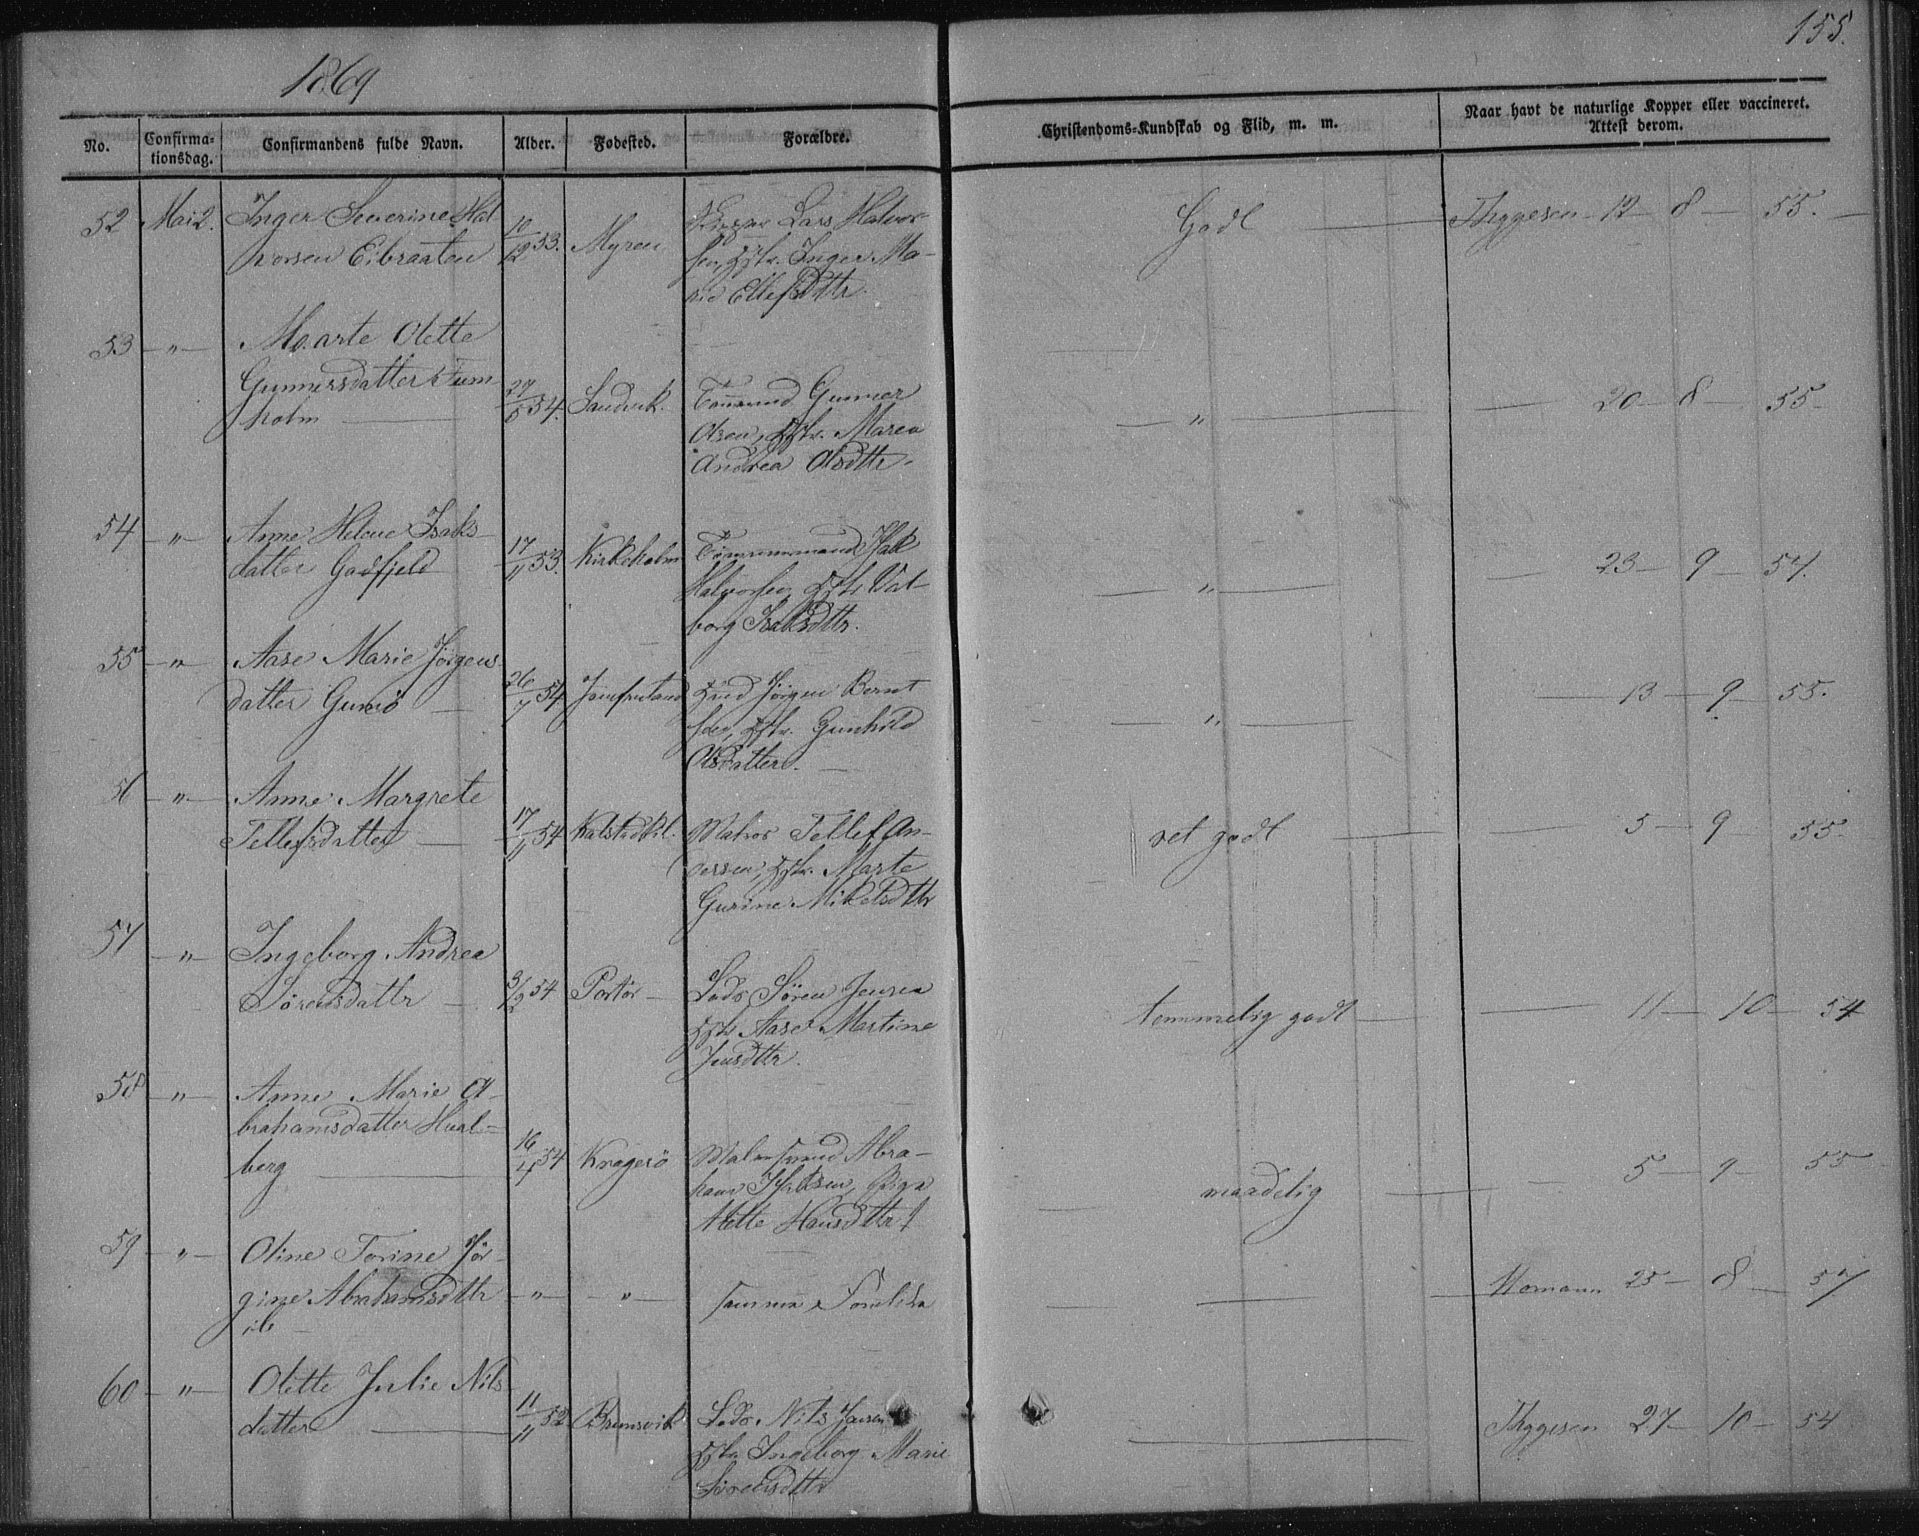 155.
1869
No. Confirma-tionsdag. Confirmandens fulde Navn. Alder. Fødested. Forældre. Christendoms-Kundskab og Flid, m. m. Naar havt de naturlige Kopper eller vaccineret. Attest derom.
52 Mai 2. Inger Severine Hal
vorsen Eibraaten 10/12 53. Myren
Lars Halvor-
sen, Hstr. Inger Ma-
rie Ellefsdttr.
Godt Thygesen 12 — 8 — 55. —
53 — " — Maarte Olette
Gunnersdatter Tum
holm — 27/5 54. Sandvik.
Tømmmd Gunner
Olsen, Hstr. Maren
Andrea Olsdttr.
— " — — 20 — 8 — 55 —
54 " Anne Helene Isaks-
datter Gadfjeld 17/11 53. Kirkeholm
Tømmermand Isak
Halvorsen, Hstr Val-
borg Isaksdttr.
— " — — 23 — 9 — 57.
55 — " — Aase Marie Jörgens
datter Gumö — 26/7 54 Jomfruland
Jörgen Bernt
sen, Hstr. Gunhild
Olsdatter. —
— " — — 13 — 9 — 55.
56 — " — Anne Margrete
Tellefsdatter — 17/11 54 Kalstadkil.
Matros Tellef An-
dersen, Hstr. Marte
Gurine Mikelsdttr
vel godt — 5 — 9 55
57 — " — Ingeborg Andrea
Sörensdattr — 3/2 54 Portör —
Lods Sören Jensen
Hstr Aase Martine
Jensdttr.
temmelig godt — — 11 — 10 — 54
58 — " — Anne Marie A-
brahamsdatter Hval-
berg — 16/4 54 Kragerö
Abra-
ham Isaksen, Pige
Mette Hansdttr
maadelig — 5 — 9 — 55
59 — " — Oline Torine Jör-
gine Abrahamsdttr — " — — " —
ib —
samme Forældre
— Homann 25 — 8 — 57
60 — " — Olette Julie Nils
datter — 11/11 52 Brunsvik
Lods Nils Jansen
Hstr Ingeborg Marie
Sörensdttr
— Thygesen 27 — 10 — 54